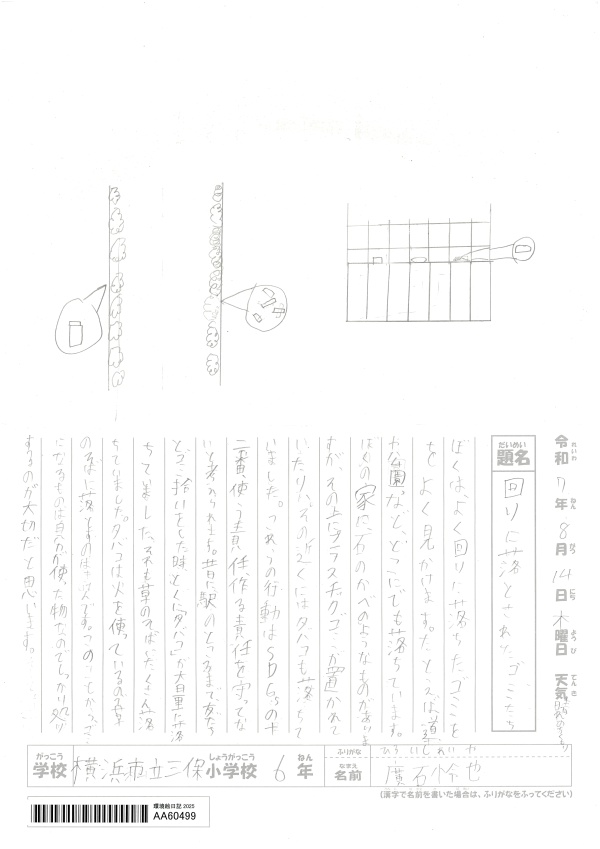 令和 7年 8月 14日 木曜日 天気
れいわ ねん がつ にち ようび てんき
だいめい
題名
回りに落とされた、ゴミたち
ぼくは、よく回りに落ちたゴミを
ちょくよく見かけます。たとえば道
や公園、など、どこにでも落ちています。
ぼくの家に石のかべのようなものがありま
すが、その上にプラスチックゴミが置かれて
いたり、その近くにはタバコも落ちて
いました。これらの行動はSDGsの十
二番、使う責任、作る責任を守ってな
いと考えられます。昔に駅のところまで友だち
とゴミ拾いをした時、とくに「タバコ」が大量に落
ちていました。それも草のそばにたくさん落
ちていました。タバコは火を使っているので草
のそばに落とすのは
になるものは自分が使った物なのでしっかり処り
するのが大切だと思います。
がっこう しょうがっこう ねん
学校 横浜市立三保小学校 6年
ふりがな ひろいし れいや
なまえ
名前 廣石怜也
(漢字で名前を書いた場合は、ふりがなをふってください)
環境絵日記 2025
AA60499